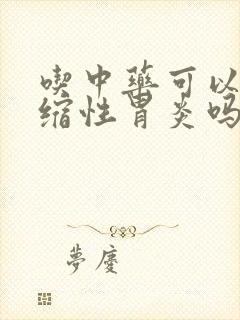 喫中藥可以
縮性胃炎吗
夢慶